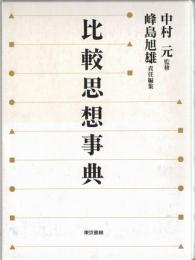 中村 元 監修
峰島旭雄 責任編集
比較思想事典
東京書籍